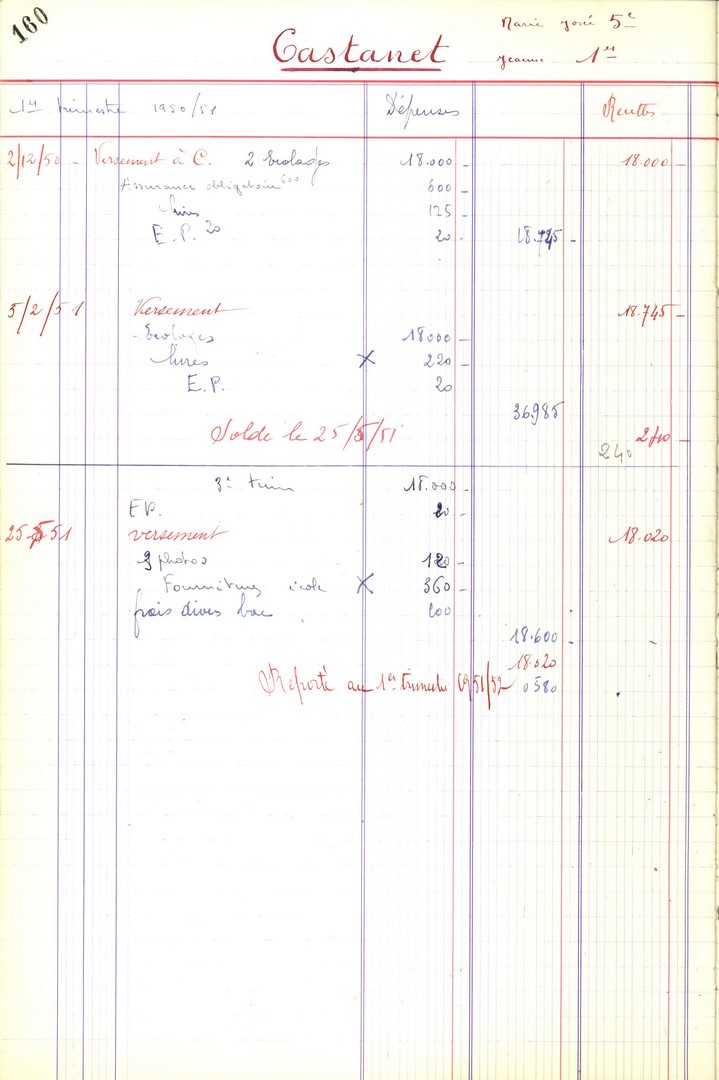 160
Marie Josée 5e
Castanet
Jeanne 1er
1er trimestre 1950/51 Dépenses Recettes
2/12/50 - Versement à C. 2 Ecolages 18.000 - 18.000 -
Assurance obligatoire 600 600 -
livres 125 -
E.P. 20 20 - 18.745 -
5/2/51 Versement 18.745 -
Ecolages 18000 -
livres X 220 -
E.P. 20
36985
Solde le 25/5/51 240 -
240
3e trim 18.000 -
EP. 20 -
25-5 51 versement 18.020
3 photos 120 -
Fournitures école X 360 -
frais divers bac 100
18.600 -
18.020
Reporté au 1er trimestre 51/52 0580